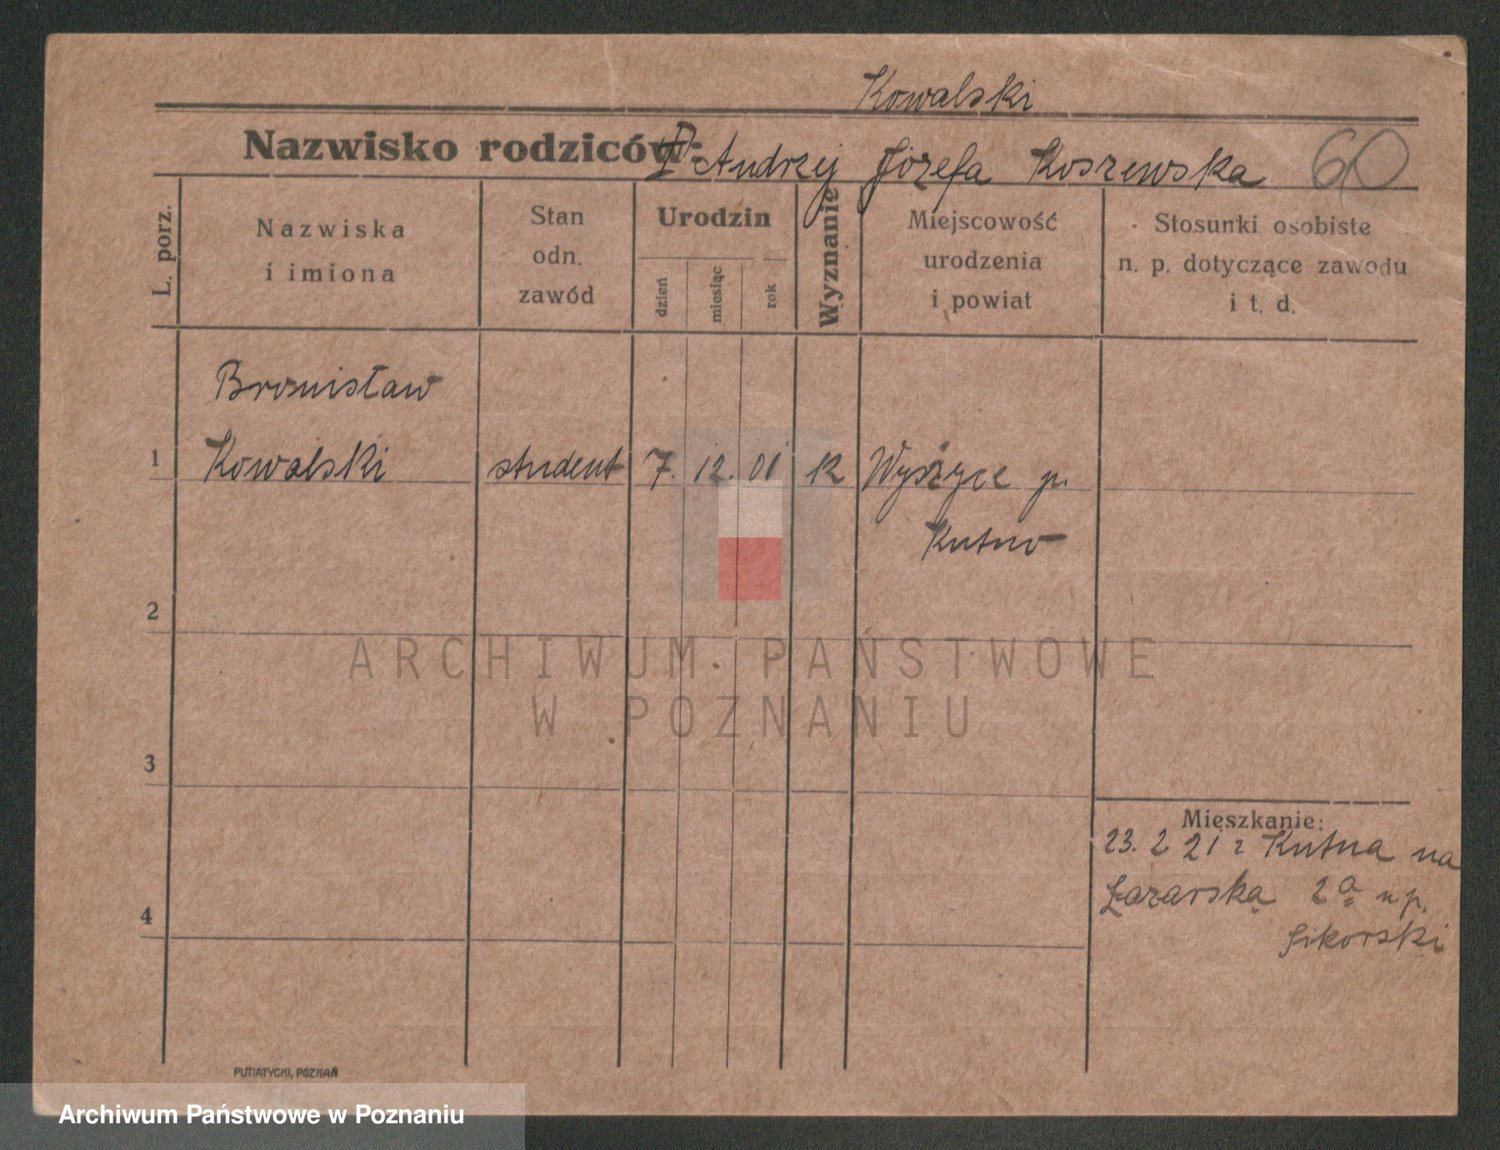 Kowalski
Nazwisko rodziców:
Andrzej Józefa Koszewska 60
L. porz.
Nazwiska
i imiona
Stan
odn.
zawód
Urodzin
dzień
miesiąc
rok
Wyznanie
Miejscowość
urodzenia
i powiat
Stosunki osobiste
n. p. dotyczące zawodu
i t. d.
Bronisław
1 Kowalski student 7. 12. 01 p.
Kutno
2
3
4
ARCHIWUM PAŃSTWOWE
W POZNANIU
Mieszkanie:
23. 2 21 z Kutna na
Łazarską 2a n p.
Sikorski
PUTIATYCKI, POZNAŃ
Archiwum Państwowe w Poznaniu